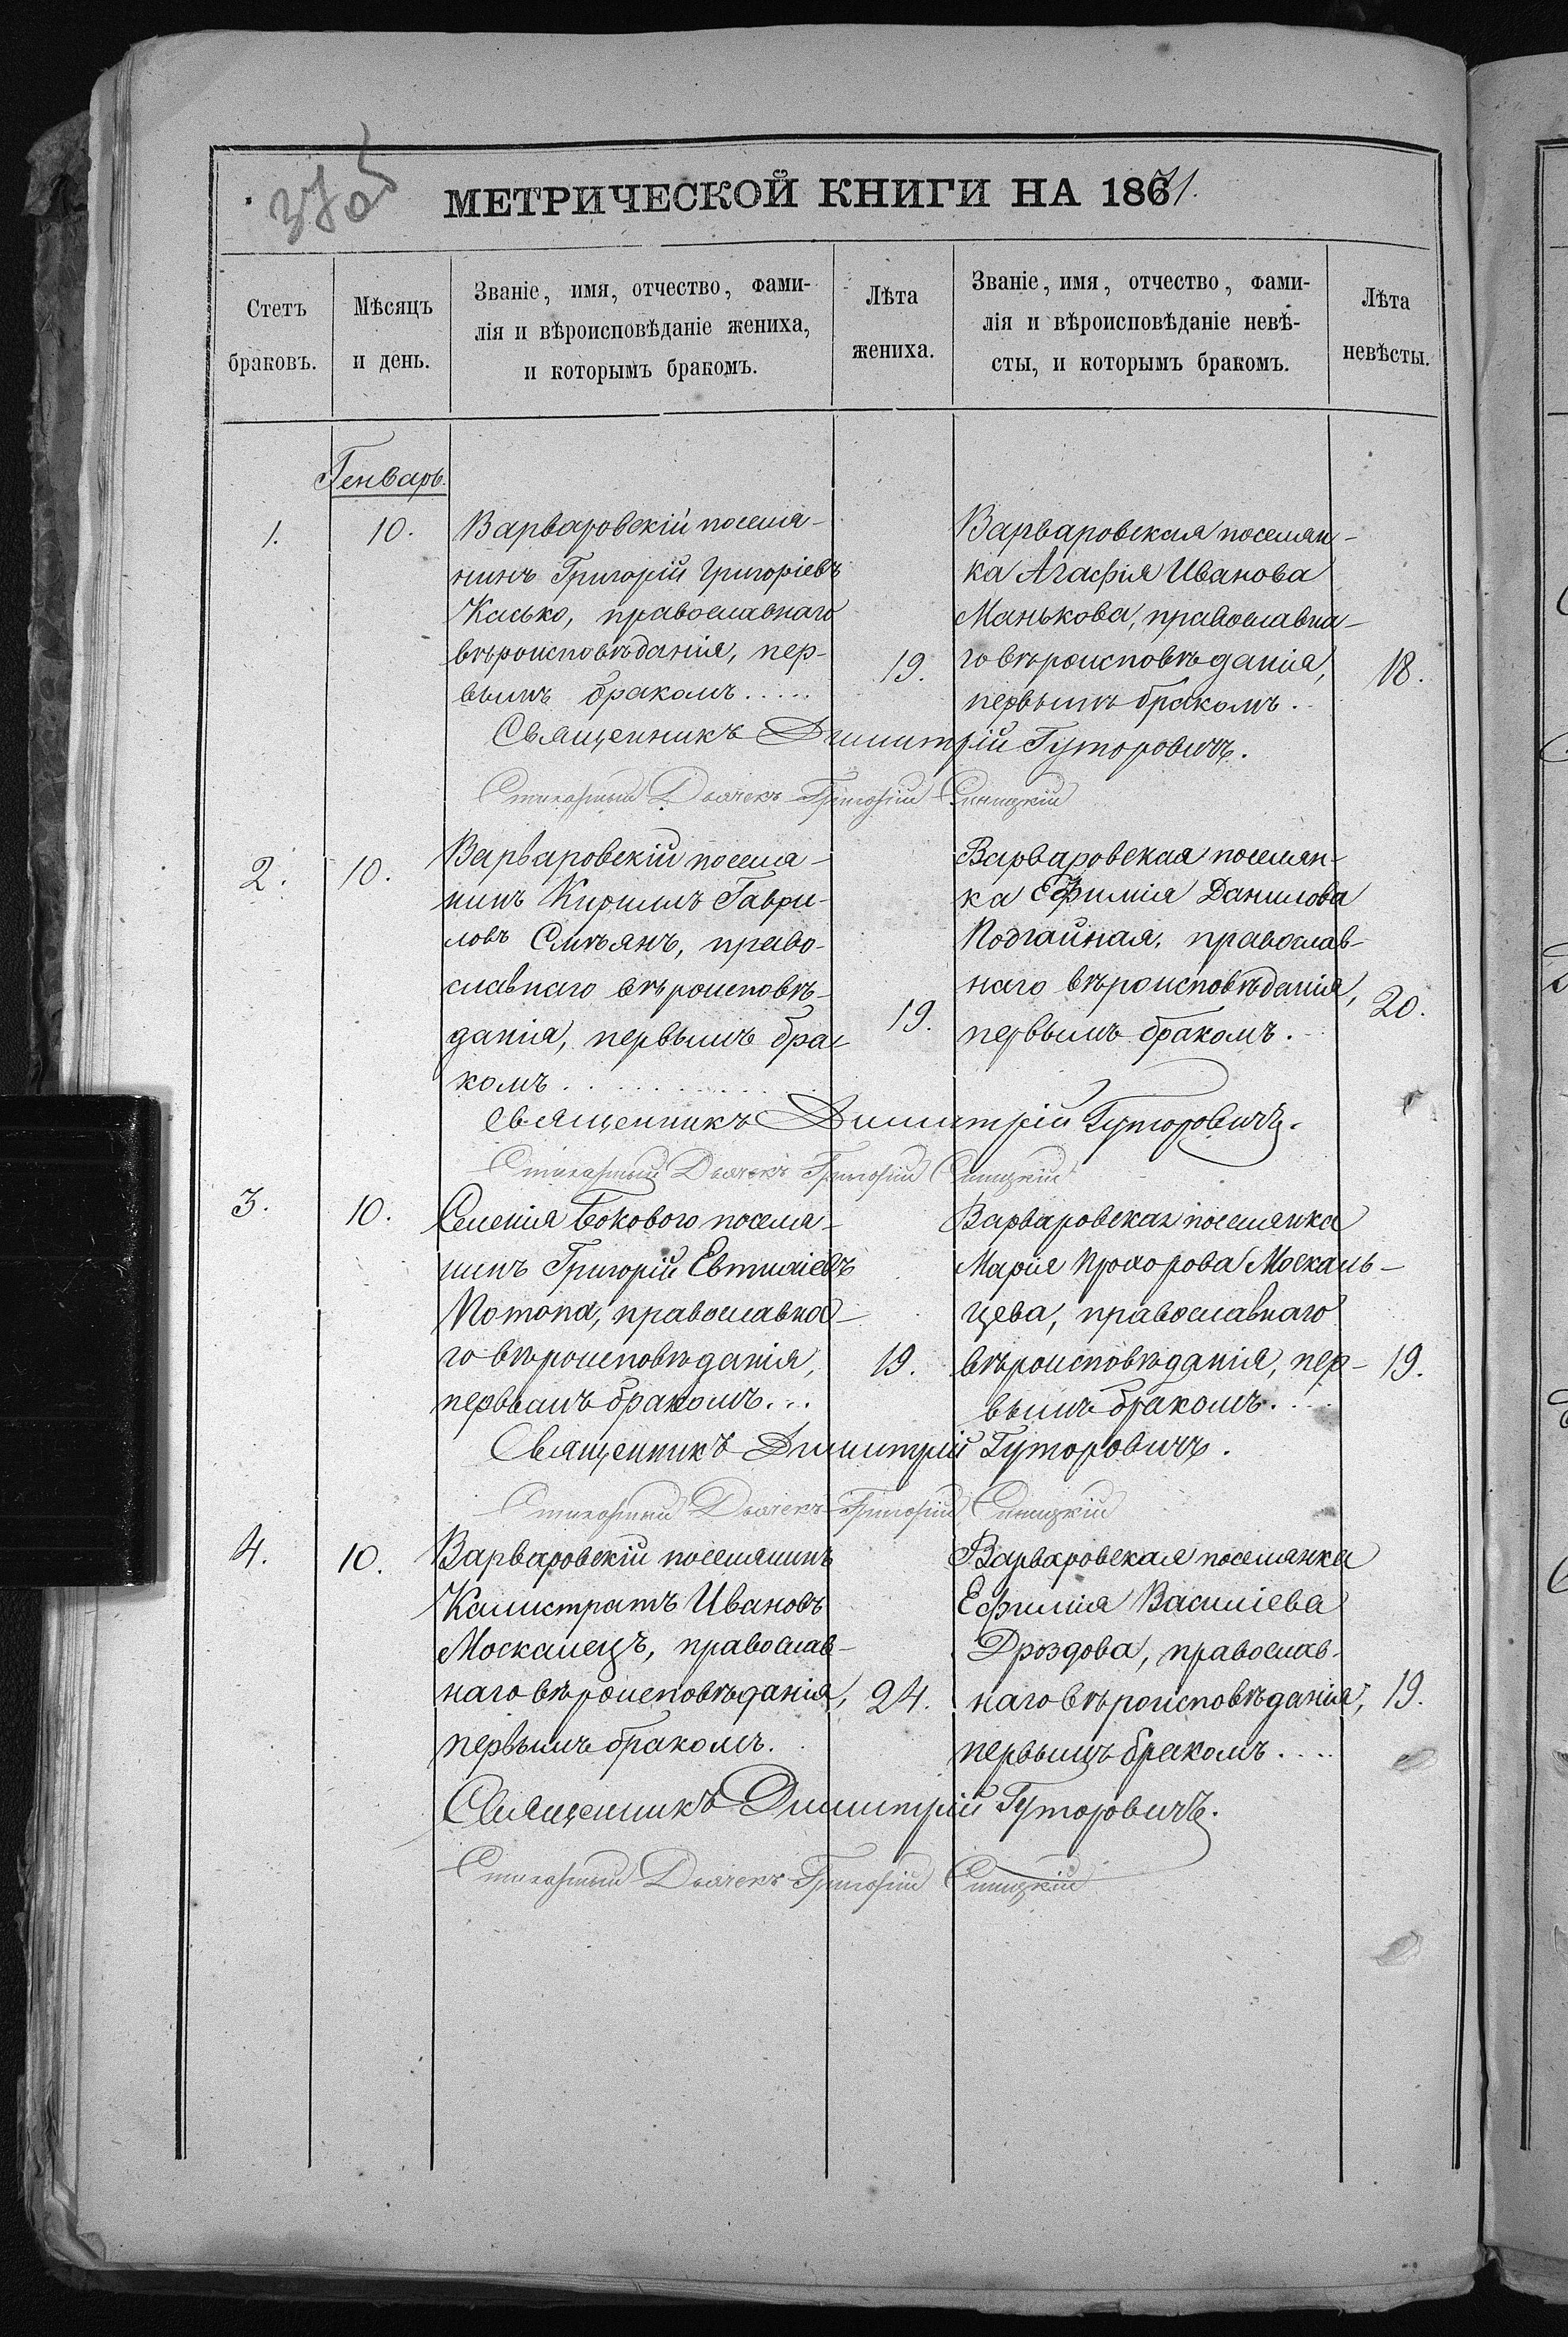 370об
МЕТРИЧЕСКОЙ КНИГИ НА 1871.
Стетъ
браковъ.
Мѣсяцъ
и день.
Званіе, имя, отчество, фами-
лія и вѣроисповѣданіе жениха,
и которымъ бракомъ.
Лѣта
жениха.
Званіе, имя, отчество, фами-
лія и вѣроисповѣданіе невѣ-
сты, и которымъ бракомъ.
Лѣта
невѣсты.
Генварь.
1.
10.
Варваровскій поселя-
нинъ Григорій Григоріевъ
Касько, православнаго
вѣроисповѣданія, пер-
вымъ бракомъ.....
19.
Варваровская поселян-
ка Агафія Иванова
Манькова, православна-
го вѣроисповѣданія,
первымъ бракомъ.
18.
Священникъ Димитрій Гуторовичъ.
Стихарный Дьячекъ Григорій Синицкій
2.
10.
Варваровскій поселя-
нинъ Кирилъ Гаври-
ловъ Смѣянъ, право-
славнаго вѣроисповѣ-
данія, первымъ бра-
комъ..........
19.
Варваровская поселян-
ка Ефимія Данилова
Подгайная, православ-
наго вѣроисповѣданія,
первымъ бракомъ.
20.
Священникъ Димитрій Гуторовичъ.
Стихарный Дьячекъ Григорій Синицкій
3.
10.
Селенія Бокового поселя-
нинъ Григорій Евтихіевъ
Потопа, православна-
го вѣроисповѣданія,
первымъ бракомъ...
19.
Варваровская поселянка
Марія Прохорова Москаль-
цева, православнаго
вѣроисповѣданія, пер-
вымъ бракомъ....
19.
Священникъ Димитрій Гуторовичъ.
Стихарный Дьячекъ Григорій Синицкій
4.
10.
Варваровскій поселянинъ
Калистратъ Ивановъ
Москалецъ, православ-
наго вѣроисповѣданія,
первымъ бракомъ.
24.
Варваровская поселянка
Ефимія Василіева
Дроздова, православ-
наго вѣроисповѣданія,
первымъ бракомъ....
19.
Священникъ Димитрій Гуторовичъ.
Стихарный Дьячекъ Григорій Синицкій